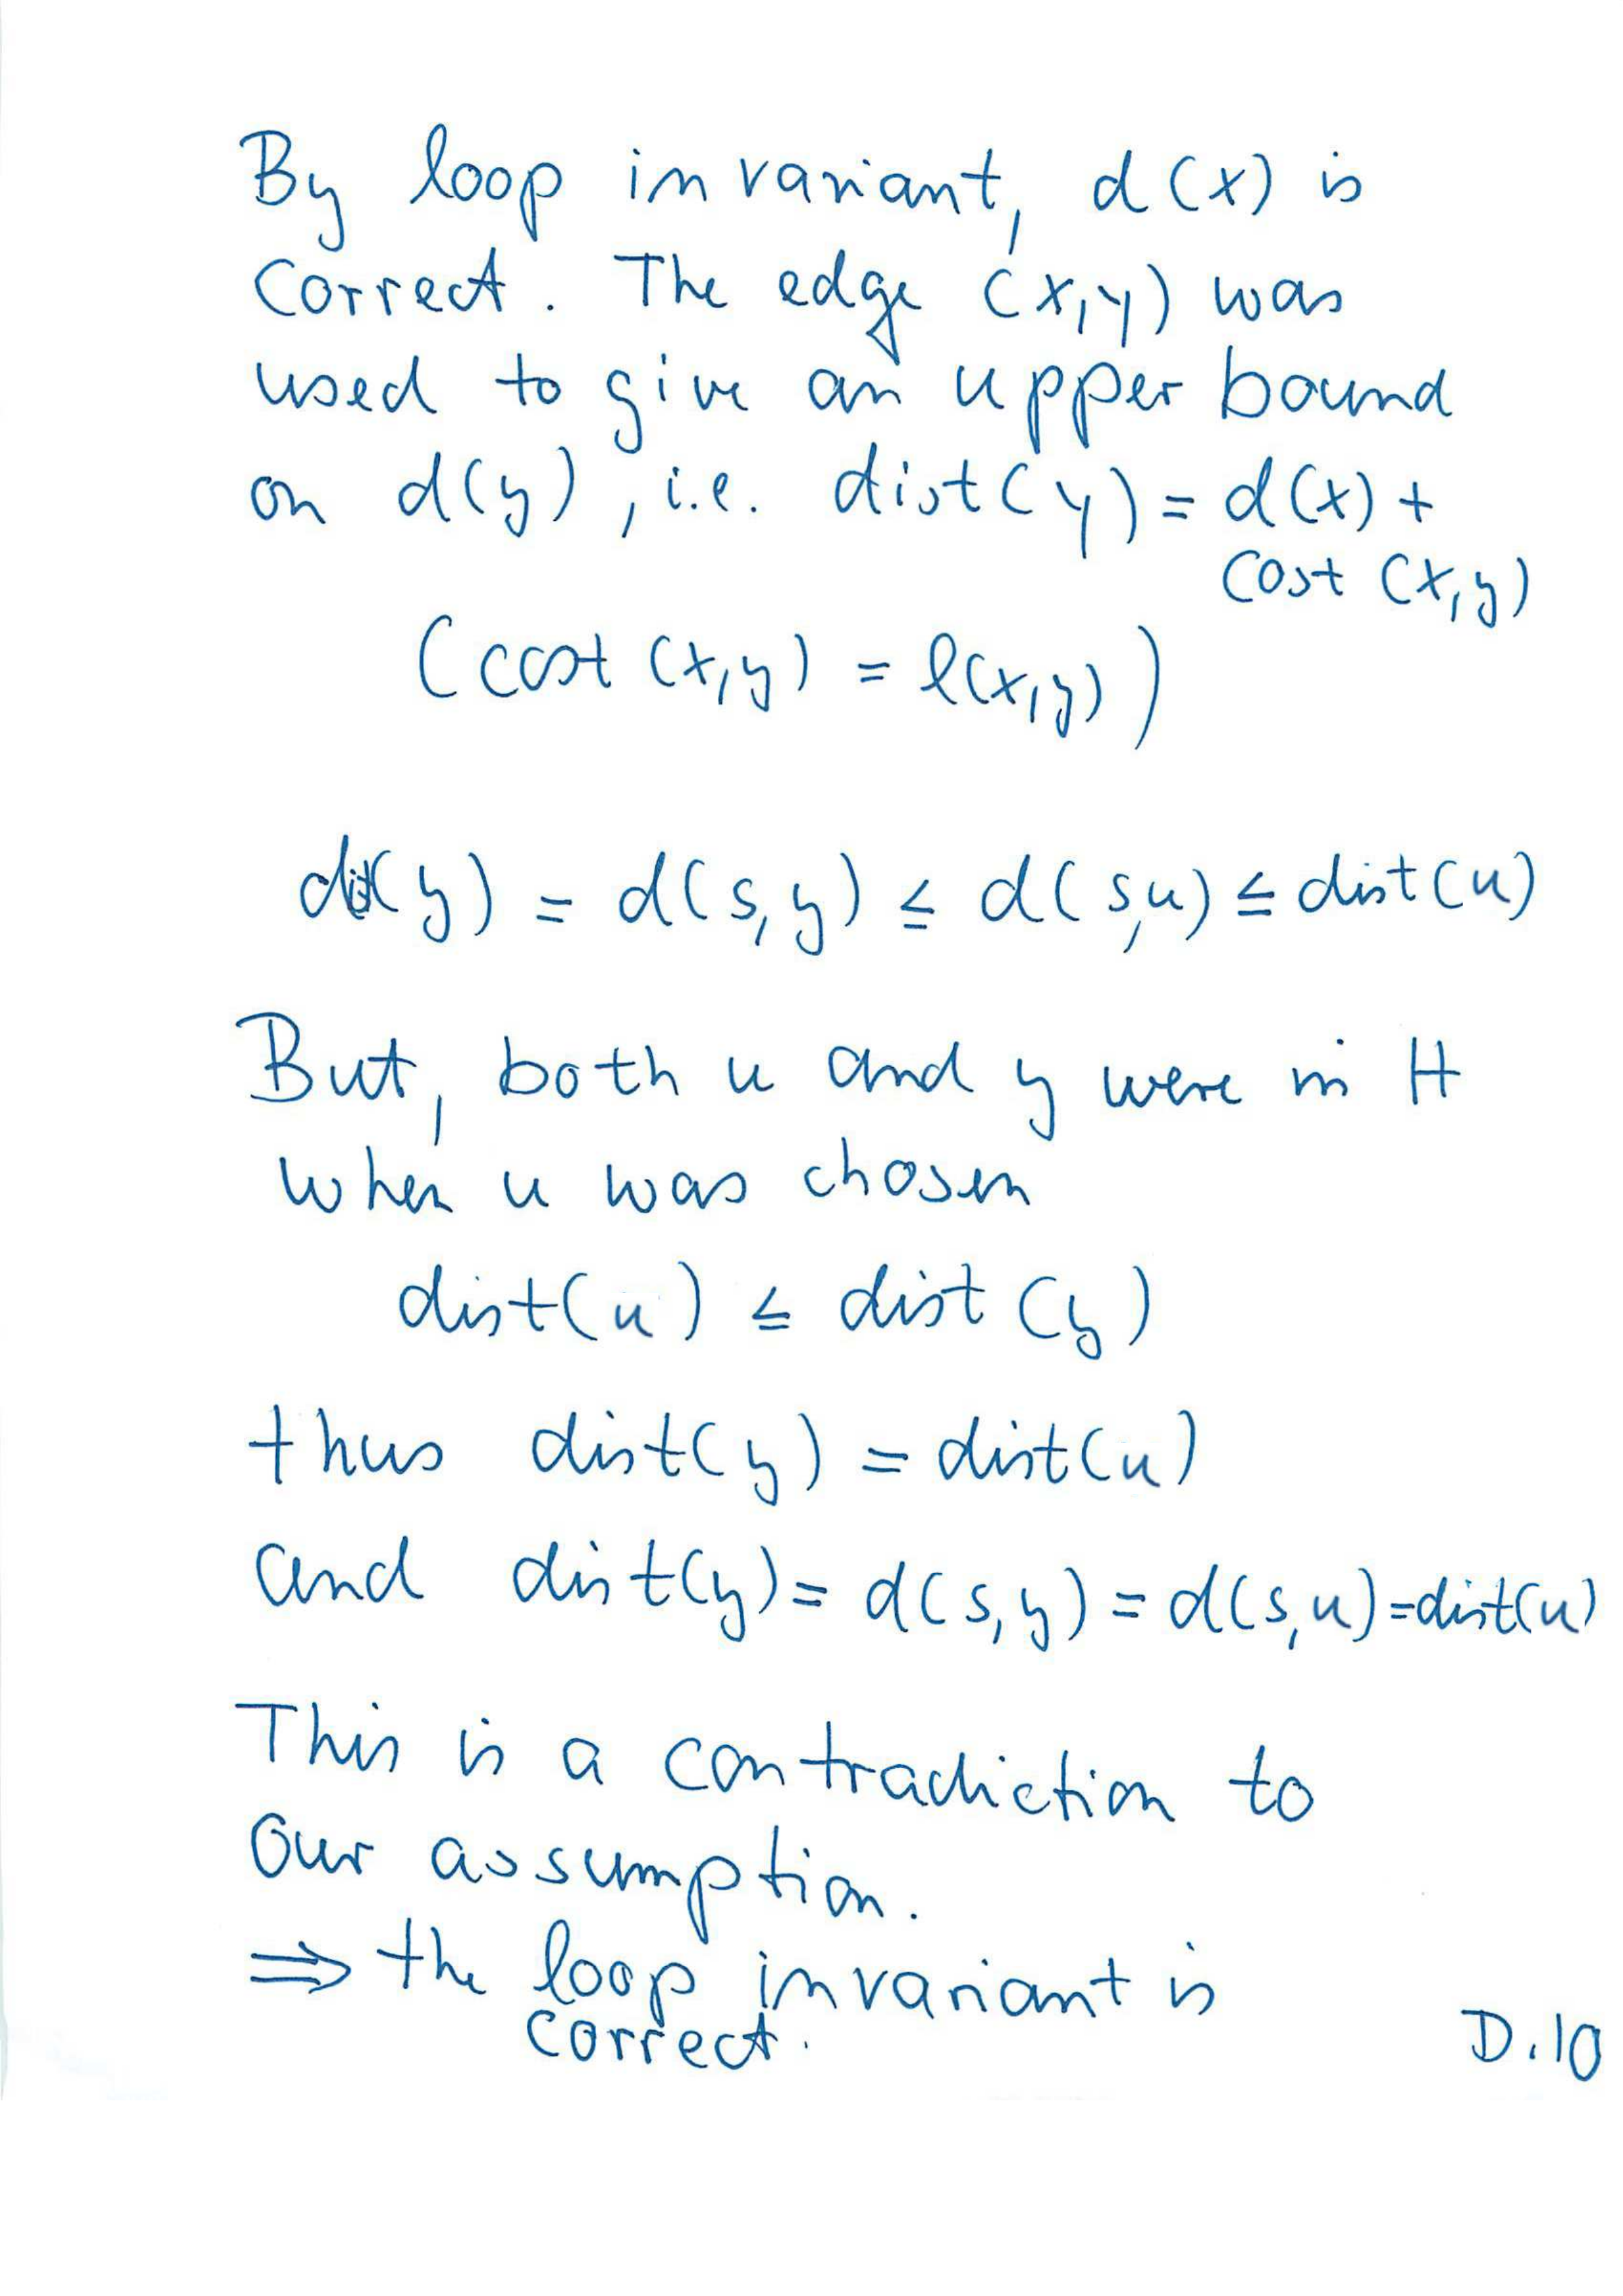 By loop invariant, d(x) is
correct. The edge (x,y) was
used to give an upper bound
on d(y), i.e. dist(y) = d(x) +
cost (x,y)
(cost (x,y) = l(x,y))
dist(y) = d(s,y) ≤ d(s,u) ≤ dist(u)
But, both u and y were in H
when u was chosen
dist(u) ≤ dist (y)
thus dist(y) = dist(u)
and dist(y) = d(s,y) = d(s,u) = dist(u)
This is a contradiction to
our assumption.
⇒ the loop invariant is
correct.
D.10